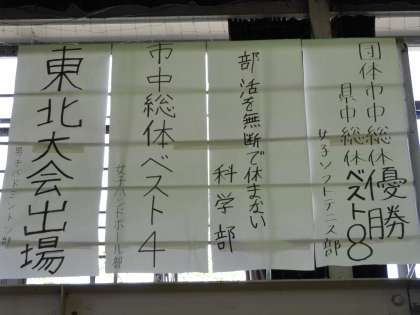 団体市中総体優勝
県中総体ベスト8
女子ソフトテニス部
部活を無断で休まない
科学部
市中総体ベスト4
女子ハンドボール部
東北大会出場
男子バドミントン部